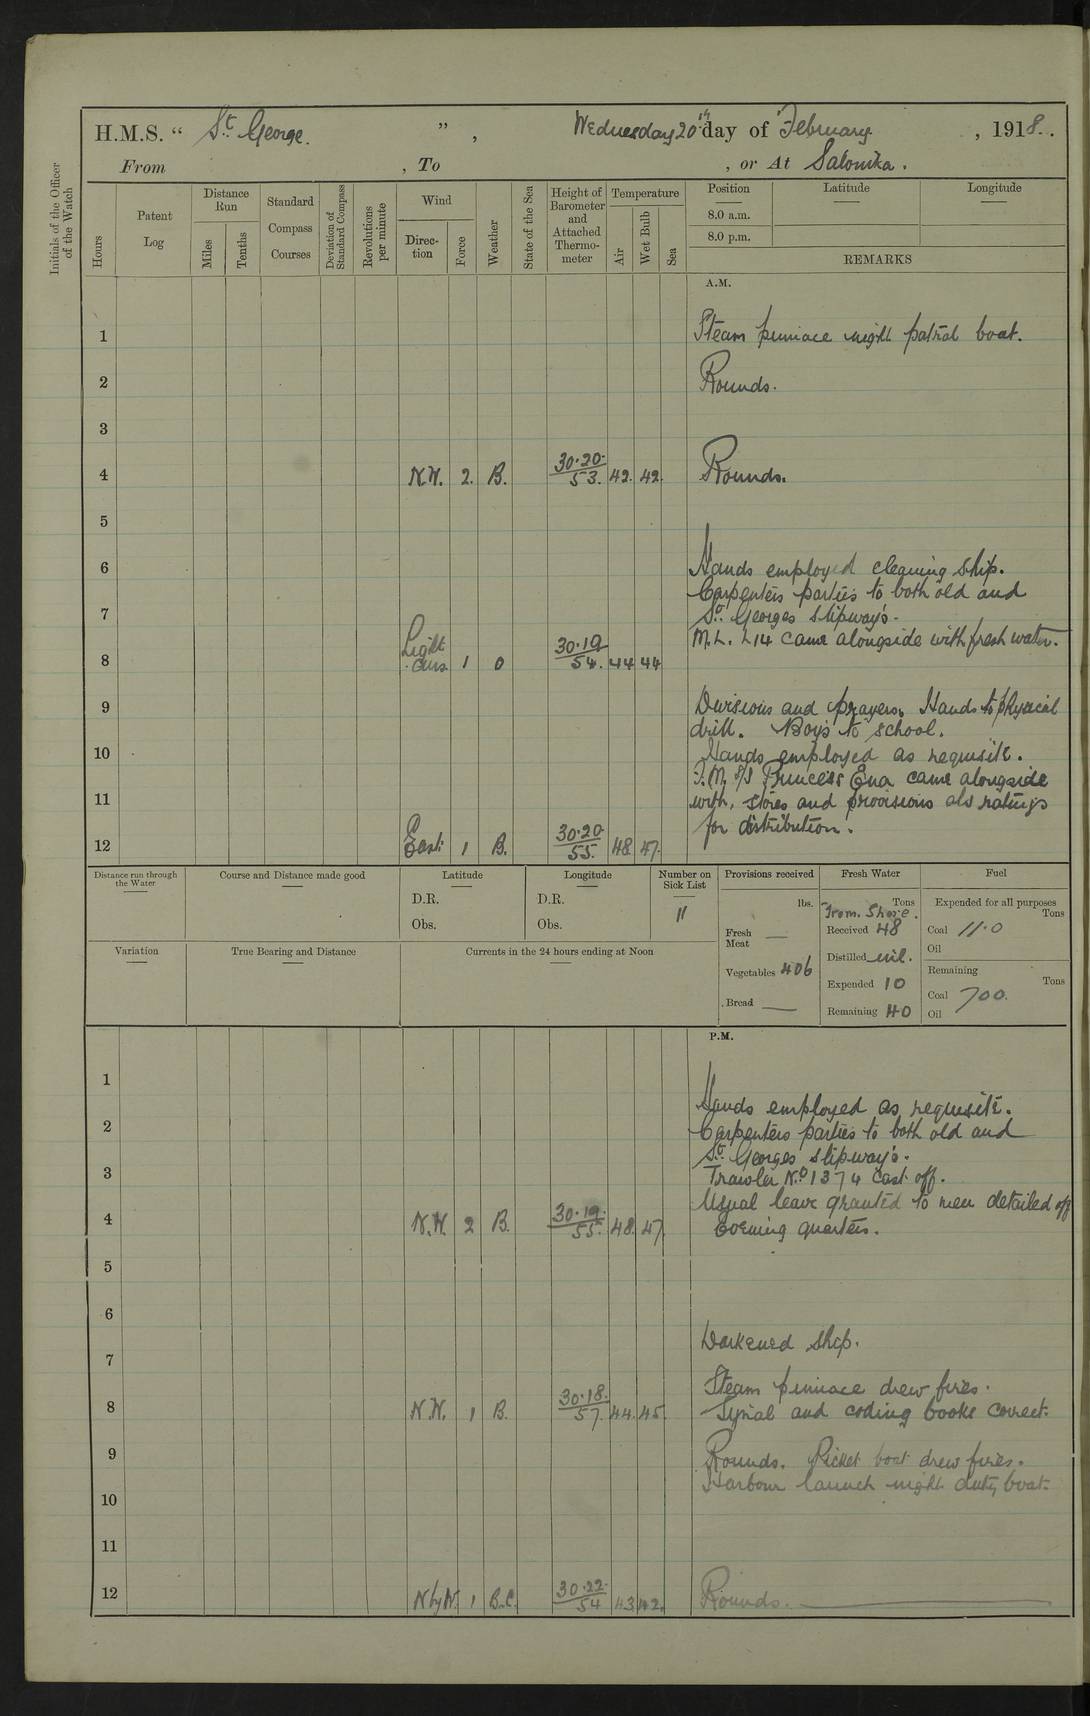 H.M.S. “ St George. ” , Wednesday 20th day of February , 1918.
From , To , or At Salonika.
Initials of the Officer of the Watch
Hours
Patent Log
Distance Run
Miles
Tenths
Standard Compass Courses
Deviation of Standard Compass
Revolutions per minute
Wind
Direction
Force
Weather
State of the Sea
Height of Barometer and Attached Thermometer
Temperature
Air
Wet Bulb
Sea
Position
8.0 a.m.
8.0 p.m.
Latitude
Longitude
REMARKS
A.M.
1 Steam pinnace night patrol boat.
2 Rounds.
3
4 N.W. 2. B. 30.20 / 53. 42. 42. Rounds.
5
6 Hands employed cleaning ship.
Carpenters parties to both old and
7 St. Georges slipway's.
M.L. L14 came alongside with fresh water.
8 Light airs 1 O 30.19 / 54. 44 44
9 Divisions and prayers. Hands to physical
drill. Boys to school.
10 Hands employed as requisite.
F.M. S/S Princess Ena came alongside
11 with, stores and provisions also ratings
for distribution.
12 East 1 B. 30.20 / 55. 48. 47.
Distance run through the Water
Course and Distance made good
Latitude
D.R.
Obs.
Longitude
D.R.
Obs.
Number on Sick List
11
Variation
True Bearing and Distance
Currents in the 24 hours ending at Noon
Provisions received
lbs.
Fresh Meat —
Vegetables 406
Bread —
Fresh Water
Tons
From Shore.
Received 48
Distilled nil.
Expended 10
Remaining 40
Fuel
Expended for all purposes
Tons
Coal 11.0
Oil
Remaining
Tons
Coal 700.
Oil
P.M.
1
Hands employed as requisite.
2 Carpenters parties to both old and
St. Georges slipway's.
3 Trawler No 1374 cast off.
Usual leave granted to men detailed off
4 N.W. 2 B. 30.19. / 55. 48. 47. Evening quarters.
5
6
Darkened ship.
7
Steam pinnace drew fires.
8 N.W. 1 B. 30.18. / 57. 44. 45. Signal and coding books correct.
9 Rounds. Picket boat drew fires.
Harbour launch night duty boat.
10
11
12 N by W. 1 B.C. 30.22. / 54 43 42. Rounds.